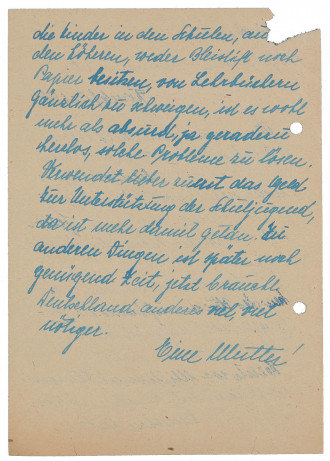 die Kinder in den Schulen, auch
den höheren, weder Bleistift noch
Papier besitzen, von Lehrbüchern
gänzlich zu schweigen, ist es wohl
mehr als absurd, ja geradezu
herzlos, solche Probleme zu lösen.
Verwendet lieber zuerst das Geld
zur Unterstützung der Schuljugend,
da ist mehr damit getan. Zu
anderen Dingen ist später noch
genügend Zeit, jetzt braucht
Deutschland anderes viel, viel
nötiger.
Eine Mutter!